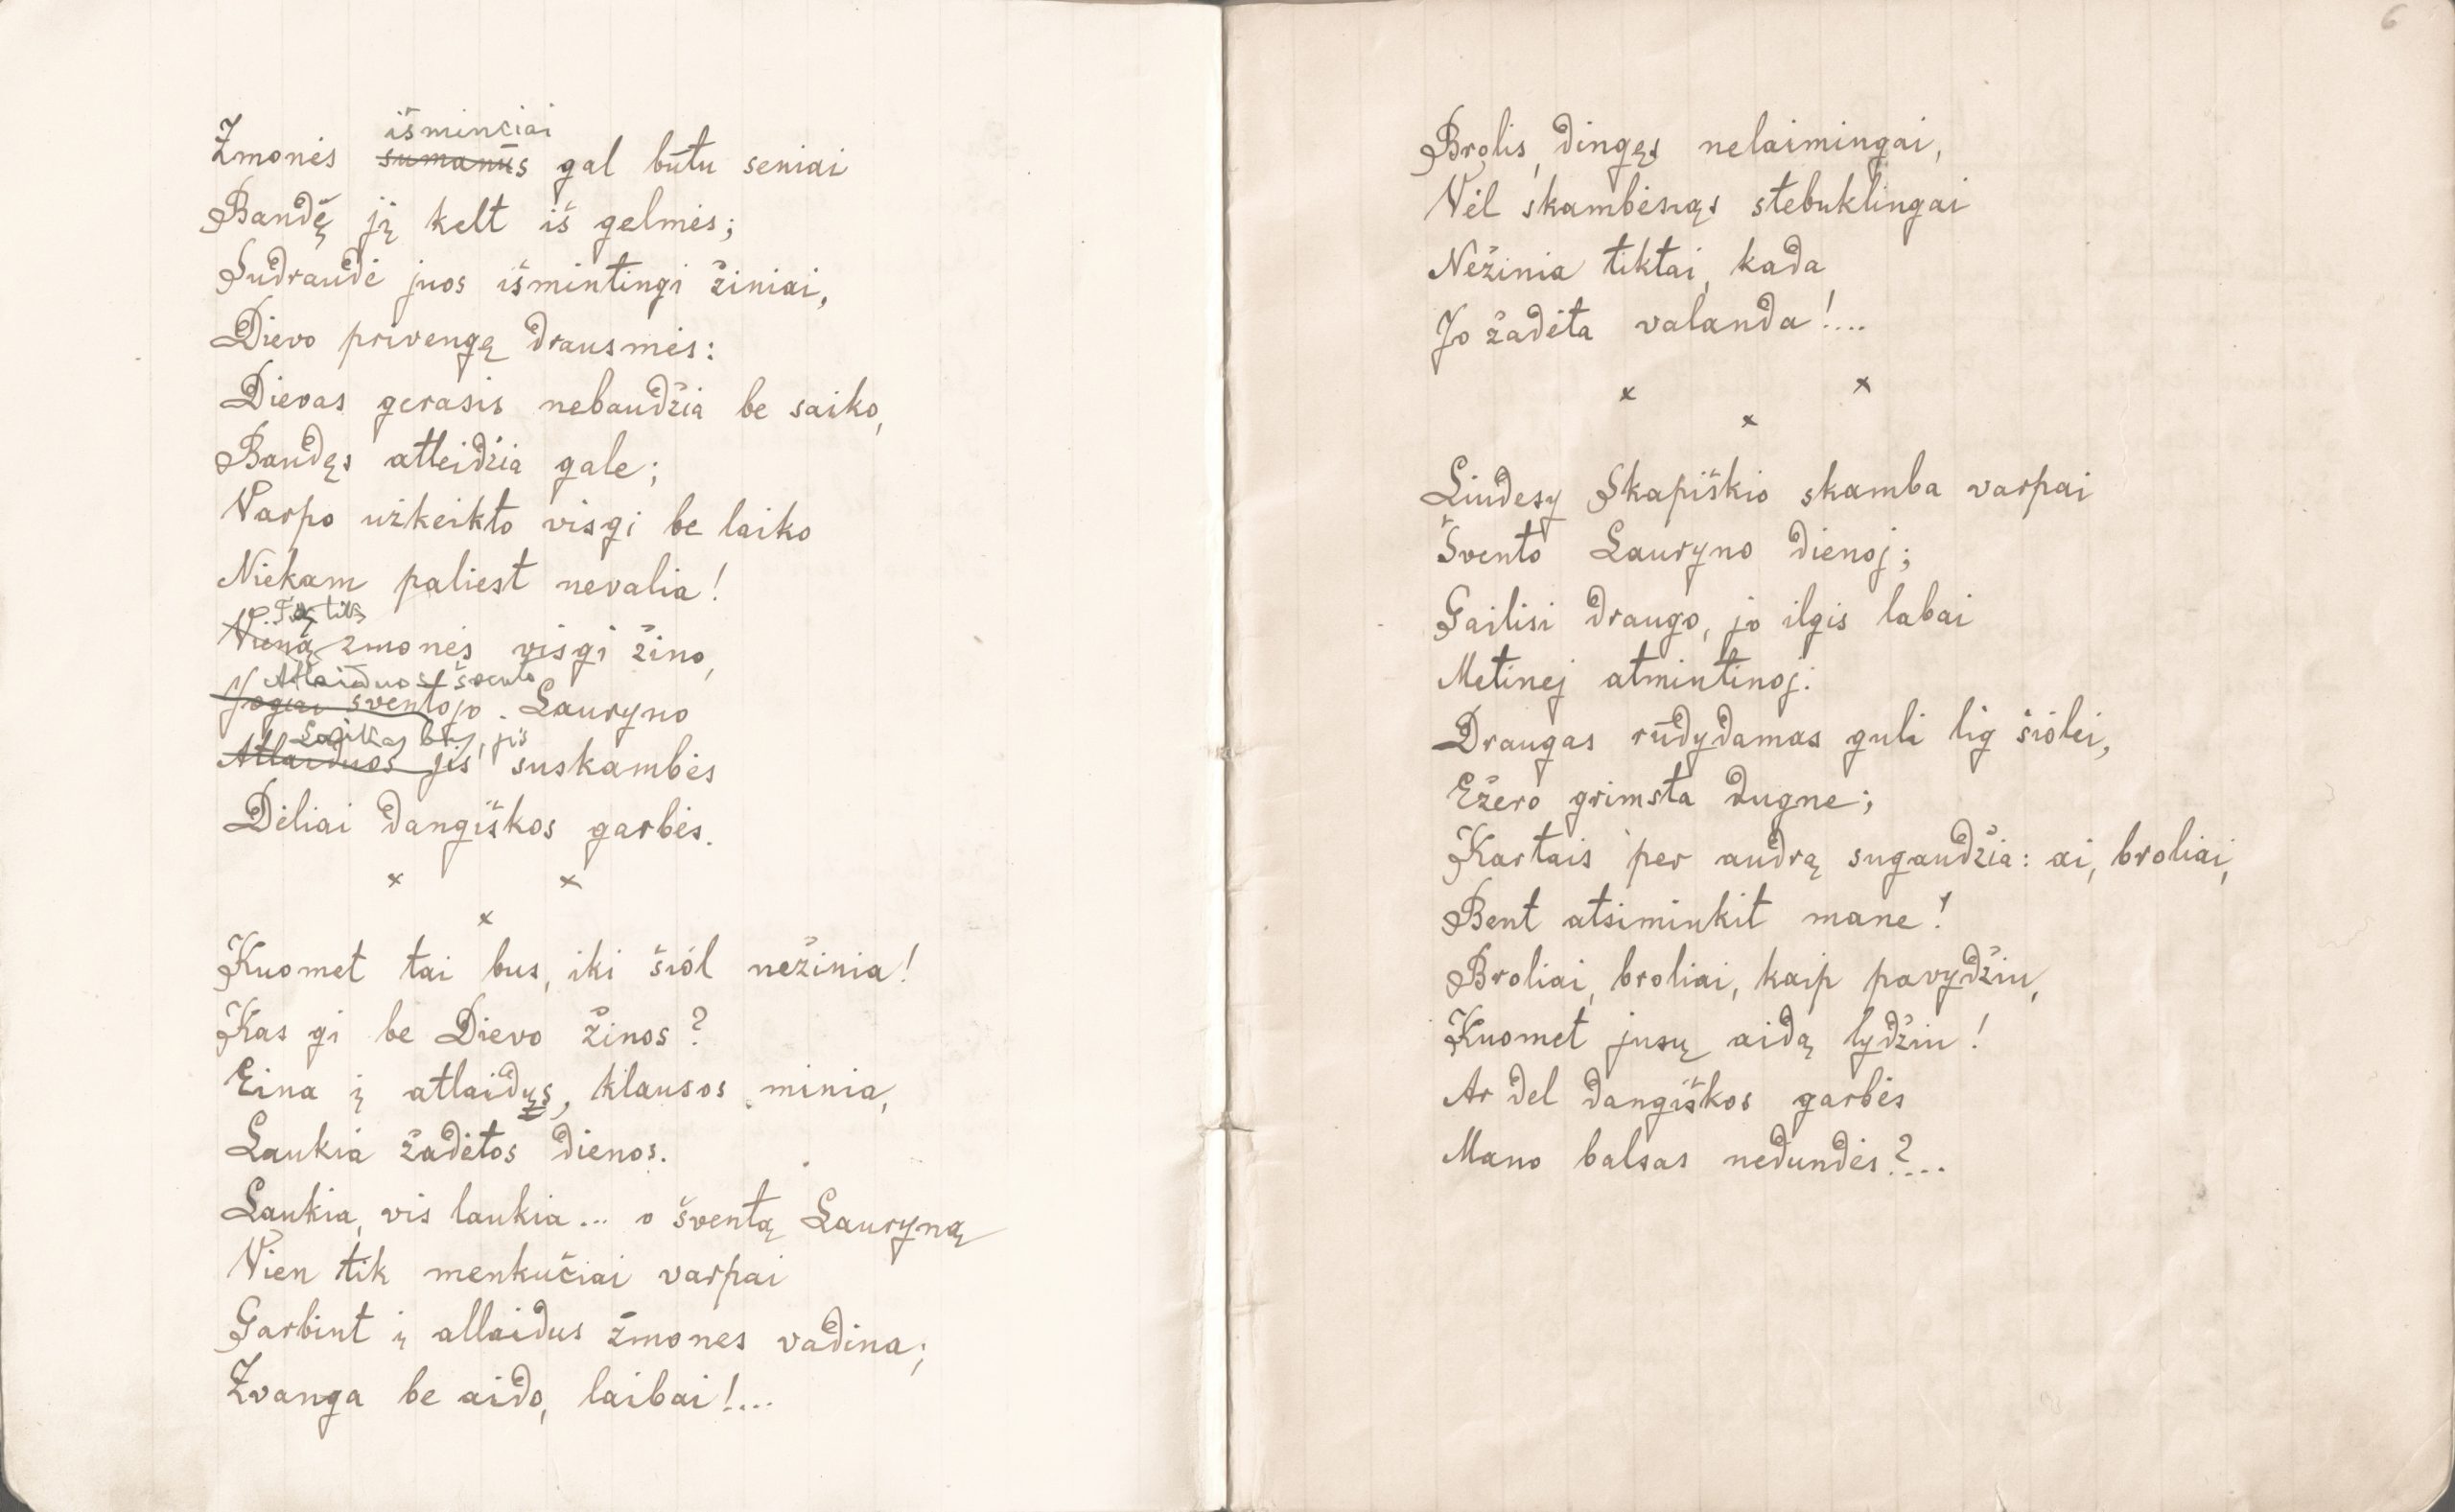 išminčiai
Žmonės sumanūs gal būtu seniai
Bandę jį kelt iš gelmės;
Sudraudė juos išmintingi žiniai,
Dievo privengę drausmės:
Dievas gerasis nebaudžia be saiko,
Baudęs atleidžia gale;
Varpo užkeikto visgi be laiko
Niekam paliest nevalia!
Tą tik
Vieną žmonės visgi žino,
Atlaiduos švento
Jogiai šventojo Lauryno
Laikas bus, jis
Atlaiduos jis suskambės
Dėliai dangiškos garbės.
x x
x
Kuomet tai bus, iki šiól nežinia!
Kas gi be Dievo žinos?
Eina į atlaidus, klausos minia,
Laukia žadėtos dienos.
Laukia, vis laukia... o šventą Lauryną
Vien tik menkučiai varpai
Garbint į atlaidus žmones vadina;
Zvanga be aido, laibai!...
6
Brolis, dingęs nelaimingai,
Vėl skambėsiąs stebuklingai
Nežinia tiktai, kada
Jo žadėta valanda!...
x x
x
Liūdesy Skapiškio skamba varpai
Švento Lauryno dienoj;
Gailisi draugo, jo ilgis labai
Metinej atmintinoj:
Draugas rūdydamas guli lig šiólei,
Ežero grimsta dugne;
Kartais per audrą sugaudžia: ai, broliai,
Bent atsiminkit mane!
Broliai, broliai, kaip pavydžiu,
Kuomet jusų aidą lydžiu!
Ar del dangiškos garbės
Mano balsas nedundės?...